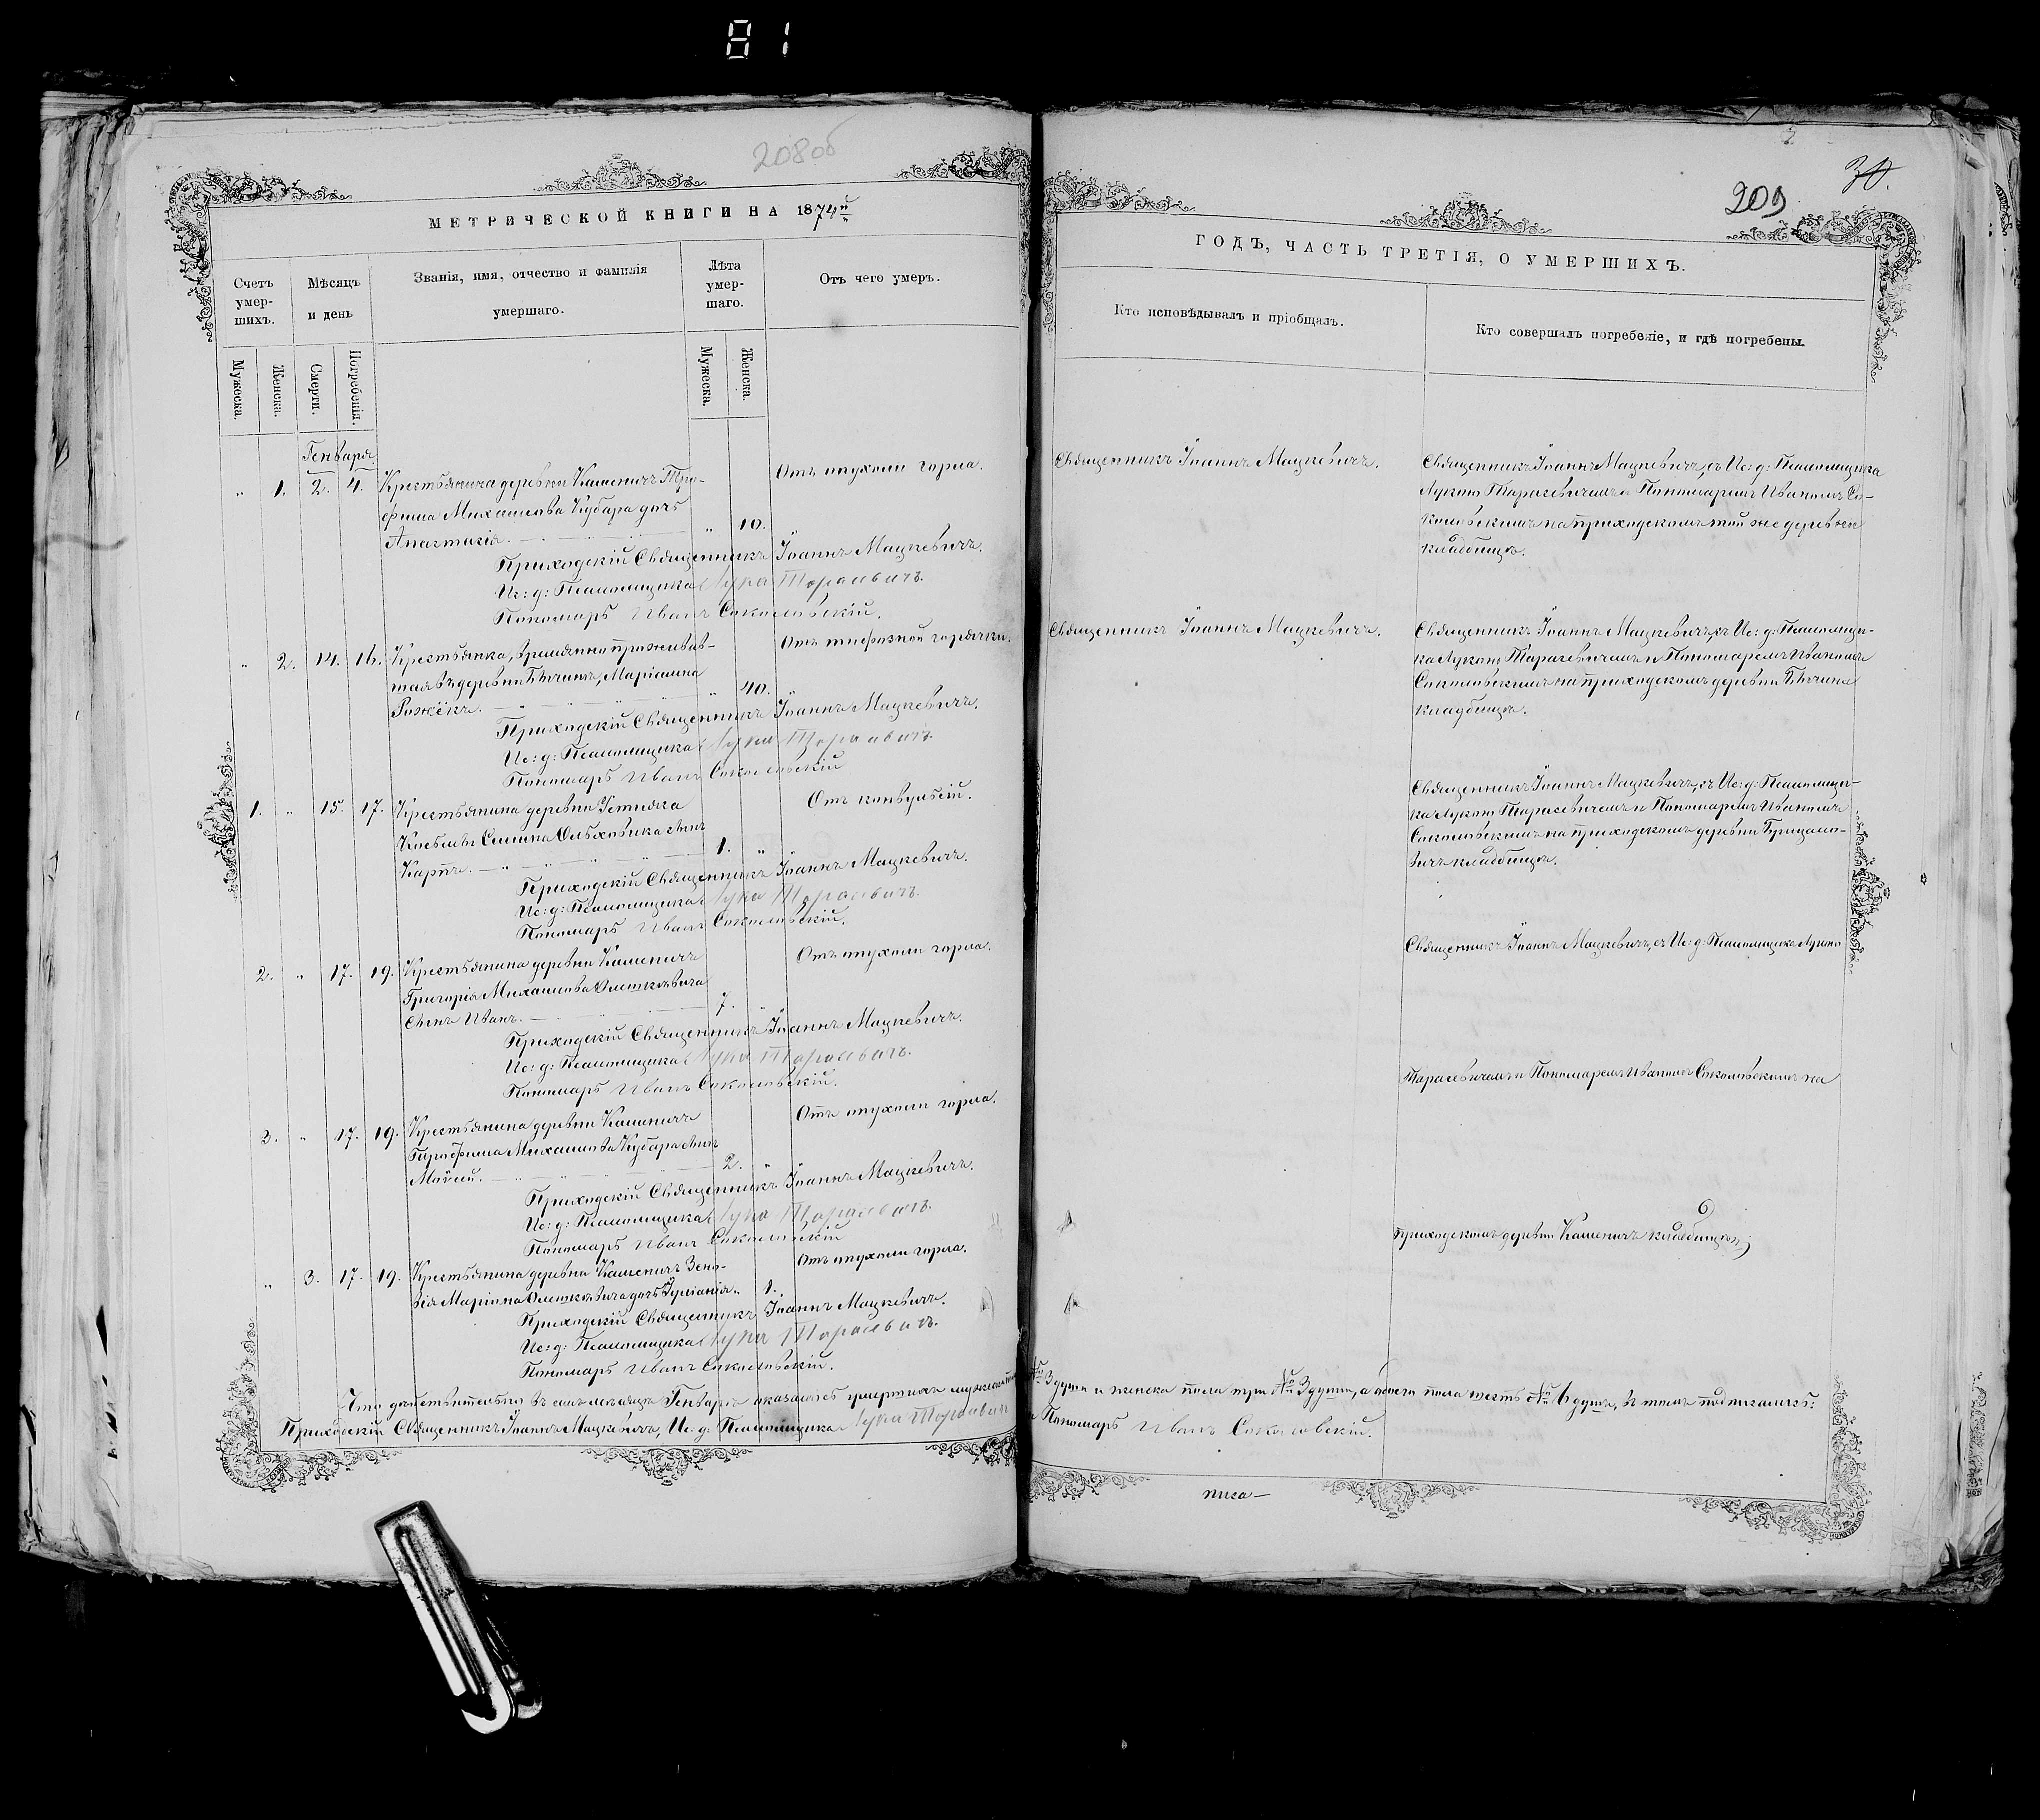 81
208об
МЕТРИЧЕСКОЙ КНИГИ НА 1874й
Счетъ умер-шихъ.
Мѣсяцъ и день
Званія, имя, отчество и фамилія умершаго.
Лѣта умер-шаго.
Отъ чего умеръ.
Мужеска.
Женска.
Смерти.
Погребенія.
Мужеска.
Женска.
Генваря
„ 1. 2. 4. Крестьянина деревни Каменичъ Тро-
фима Михаилова Кубара дочь
Анастасія. „ 10.
Отъ опухоли горла.
Приходскій Священникъ Іоаннъ Мацкевичъ.
Ис: д: Псаломщика Лука Тарасевичъ.
Пономарь Иванъ Соколовскій.
„ 2. 14. 16. Крестьянка, временно проживав-
шая въ деревни Бѣчинъ, Маріанна
„ 40.
Отъ тифозной горячки.
Приходскій Священникъ Іоаннъ Мацкевичъ.
Ис: д: Псаломщика Лука Тарасевичъ.
Пономарь Иванъ Соколовскій
1. „ 15. 17. Крестьянина деревни
Ольховика сынъ
Карпъ. 1. „
Отъ конвульсій.
Приходскій Священникъ Іоаннъ Мацкевичъ.
Ис: д: Псаломщика Лука Тарасевичъ.
Пономарь Иванъ Соколовскій.
2. „ 17. 19. Крестьянина деревни Каменичъ
Григорія Михаилова Олешкевича
сынъ Иванъ. 7. „
Отъ опухоли горла.
Приходскій Священникъ Іоаннъ Мацкевичъ.
Ис: д: Псаломщика Лука Тарасевичъ.
Пономарь Иванъ Соколовскій.
3. „ 17. 19. Крестьянина деревни Каменичъ
Трофима Михаилова Кубара сынъ
Моисей. 2. „
Отъ опухоли горла.
Приходскій Священникъ Іоаннъ Мацкевичъ.
Ис: д: Псаломщика Лука Тарасевичъ.
Пономарь Иванъ Соколовскій
„ 3. 17. 19. Крестьянина деревни Каменичъ Зено-
вія Олешкевича дочь Іуліанія. „ 1.
Отъ опухоли горла.
Приходскій Священникъ Іоаннъ Мацкевичъ.
Ис: д: Псаломщика Лука Тарасевичъ.
Пономарь Иванъ Соколовскій.
Что действительно въ семъ месяцѣ Генварѣ оказалось умершихъ мужеска пола
Приходскій Священникъ Іоаннъ Мацкевичъ, Ис: д: Псаломщика Лука Тарасевичъ
30.
209
ГОДЪ, ЧАСТЬ ТРЕТІЯ, О УМЕРШИХЪ.
Кто исповѣдывалъ и пріобщалъ.
Кто совершалъ погребеніе, и гдѣ погребены.
Священникъ Іоаннъ Мацкевичъ.
Священникъ Іоаннъ Мацкевичъ, съ Ис: д: Псаломщика
Лукою Тарасевичемъ и Пономаремъ Иваномъ Со-
коловскимъ на приходскомъ той же деревни
кладбищѣ.
Священникъ Іоаннъ Мацкевичъ.
Священникъ Іоаннъ Мацкевичъ, съ Ис: д: Псаломщи-
ка Лукою Тарасевичемъ и Пономаремъ Иваномъ
Соколовскимъ на приходскомъ деревни Бѣчина
кладбищѣ.
Священникъ Іоаннъ Мацкевичъ, съ Ис: д: Псаломщи-
ка Лукою Тарасевичемъ и Пономаремъ Иваномъ
Соколовскимъ на приходскомъ деревни Грицано-
вичъ кладбищѣ.
Священникъ Іоаннъ Мацкевичъ, съ Ис: д: Псаломщика Лукою
Тарасевичемъ и Пономаремъ Иваномъ Соколовскимъ на
приходскомъ деревни Каменичъ кладбищѣ;
№ 3 души и женска пола три № 3 души, а обоего пола шесть № 6 душъ, въ томъ подписались:
и Пономарь Иванъ Соколовскій.